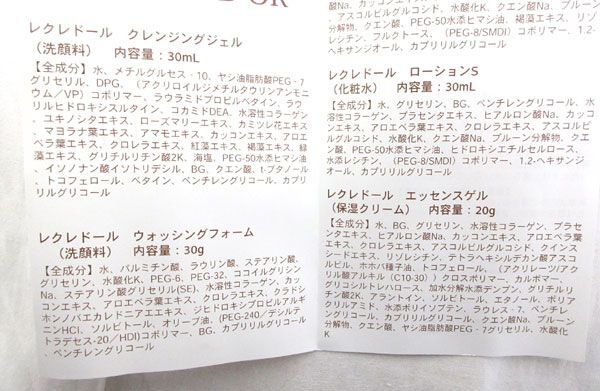 D'OR
レクレドール クレンジングジェル
（洗顔料） 内容量：30mL
【全成分】水、メチルグルセス‐10、ヤシ油脂肪酸PEG‐7
グリセリル、DPG、（アクリロイルジメチルタウリンアンモニ
ウム／VP）コポリマー、ラウラミドプロピルベタイン、ラウ
リルヒドロキシスルタイン、コカミドDEA、水溶性コラーゲン
、ユキノシタエキス、ローズマリーエキス、カミツレ花エキス
、マヨラナ葉エキス、アマモエキス、カッコンエキス、アロエ
ベラ葉エキス、クロレラエキス、紅藻エキス、褐藻エキス、緑
藻エキス、グリチルリチン酸2K、海塩、PEG‐50水添ヒマシ油
、イソノナン酸イソトリデシル、BG、クエン酸、t‐ブタノール
、トコフェロール、ベタイン、ペンチレングリコール、カプリ
リルグリコール
レクレドール ウォッシングフォーム
（洗顔料） 内容量：30g
【全成分】水、パルミチン酸、ラウリン酸、ステアリン酸、
グリセリン、水酸化K、PEG‐6、PEG‐32、ココイルグリシン
Na、ステアリン酸グリセリル(SE)、水溶性コラーゲン、カッ
コンエキス、アロエベラ葉エキス、クロレラエキス、クラドシ
ホンノバエカレドニアエエキス、ジヒドロキシプロピルアルギ
ニンHCl、ソルビトール、オリーブ油、（PEG‐240／デシルテ
トラデセス‐20／HDI）コポリマー、BG、カプリリルグリコール
、ペンチレングリコール
酸Na、カッコンエキス
、アスコルビルグルコシド、水酸化K、クエン酸Na、プルーン
分解物、クエン酸、PEG‐50水添ヒマシ油、褐藻エキス、リゾ
レシチン、フルクトース、（PEG‐8/SMDI）コポリマー、1.2‐
ヘキサンジオール、カプリリルグリコール
レクレドール ローションS
（化粧水） 内容量：30mL
【全成分】水、グリセリン、BG、ペンチレングリコール、水
溶性コラーゲン、プラセンタエキス、ヒアルロン酸Na、カッコン
エキス、アロエベラ葉エキス、クロレラエキス、アスコルビ
ルグルコシド、水酸化K、クエン酸Na、プルーン分解物、クエ
ン酸、PEG‐50水添ヒマシ油、ヒドロキシエチルセルロース、
水添レシチン、（PEG‐8/SMDI）コポリマー、1.2‐ヘキサンジ
オール、カプリリルグリコール
レクレドール エッセンスゲル
（保湿クリーム） 内容量：20g
【全成分】水、BG、グリセリン、水溶性コラーゲン、プラセ
ンタエキス、ヒアルロン酸Na、カッコンエキス、アロエベラ葉
エキス、クロレラエキス、アスコルビルグルコシド、クインス
シードエキス、リゾレシチン、テトラヘキシルデカン酸アスコ
ルビル、ホホバ種子油、トコフェロール、（アクリレーツ/アク
リル酸アルキル（C10‐30））クロスポリマー、カルボマー、
グリコシルトレハロース、加水分解水添デンプン、グリチルリ
チン酸2K、アラントイン、ソルビトール、エタノール、ポリア
クリルアミド、水添ポリイソブテン、ラウレス‐7、ペンチレ
ングリコール、カプリリルグリコール、クエン酸Na、プルーン
分解物、クエン酸、ヤシ油脂肪酸PEG‐7グリセリル、水酸化
K